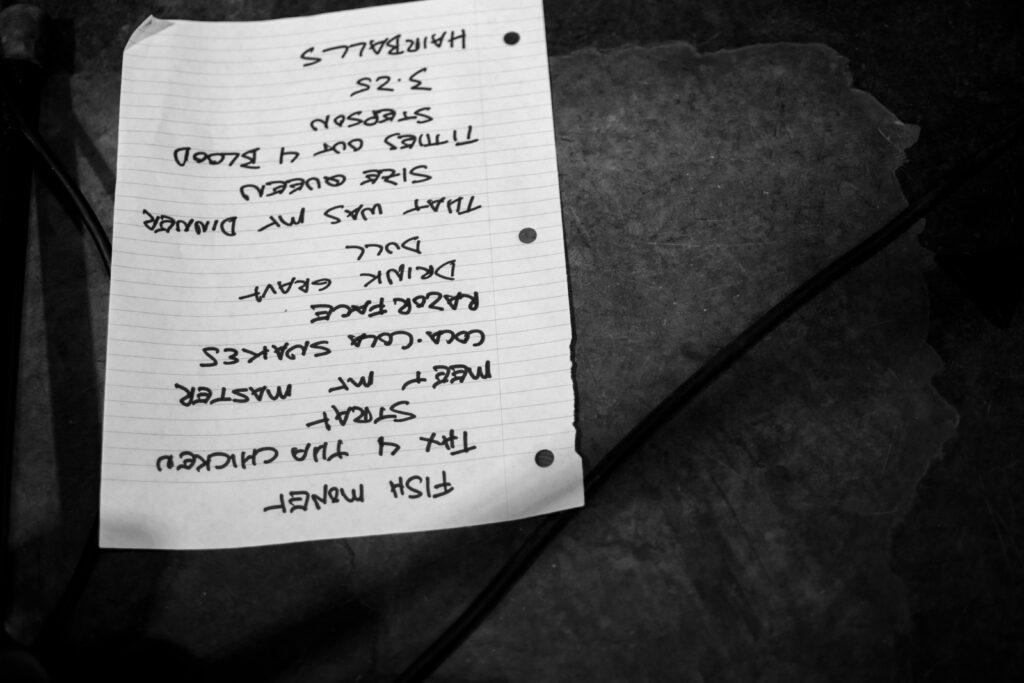 FISH MONEY
TAX 4 THA CHICKEN
STRAY
MEET MY MASTER
COCA-COLA SNAKES
RAZOR FACE
DRINK GRAVY
DULL
THAT WAS MY DINNER
SIZE QUEEN
TITTIES OUT 4 BLOOD
STEPSON
3.25
HAIRBALLS